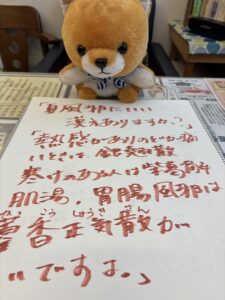 「夏風邪にいい
漢方ありますか?」
「熱感がありのどが痛
いときは、銀翹散
寒けのある人は柴葛解
肌湯、胃腸風邪は
藿香正気散が
かっこうしょうきさん
いいですよ。」